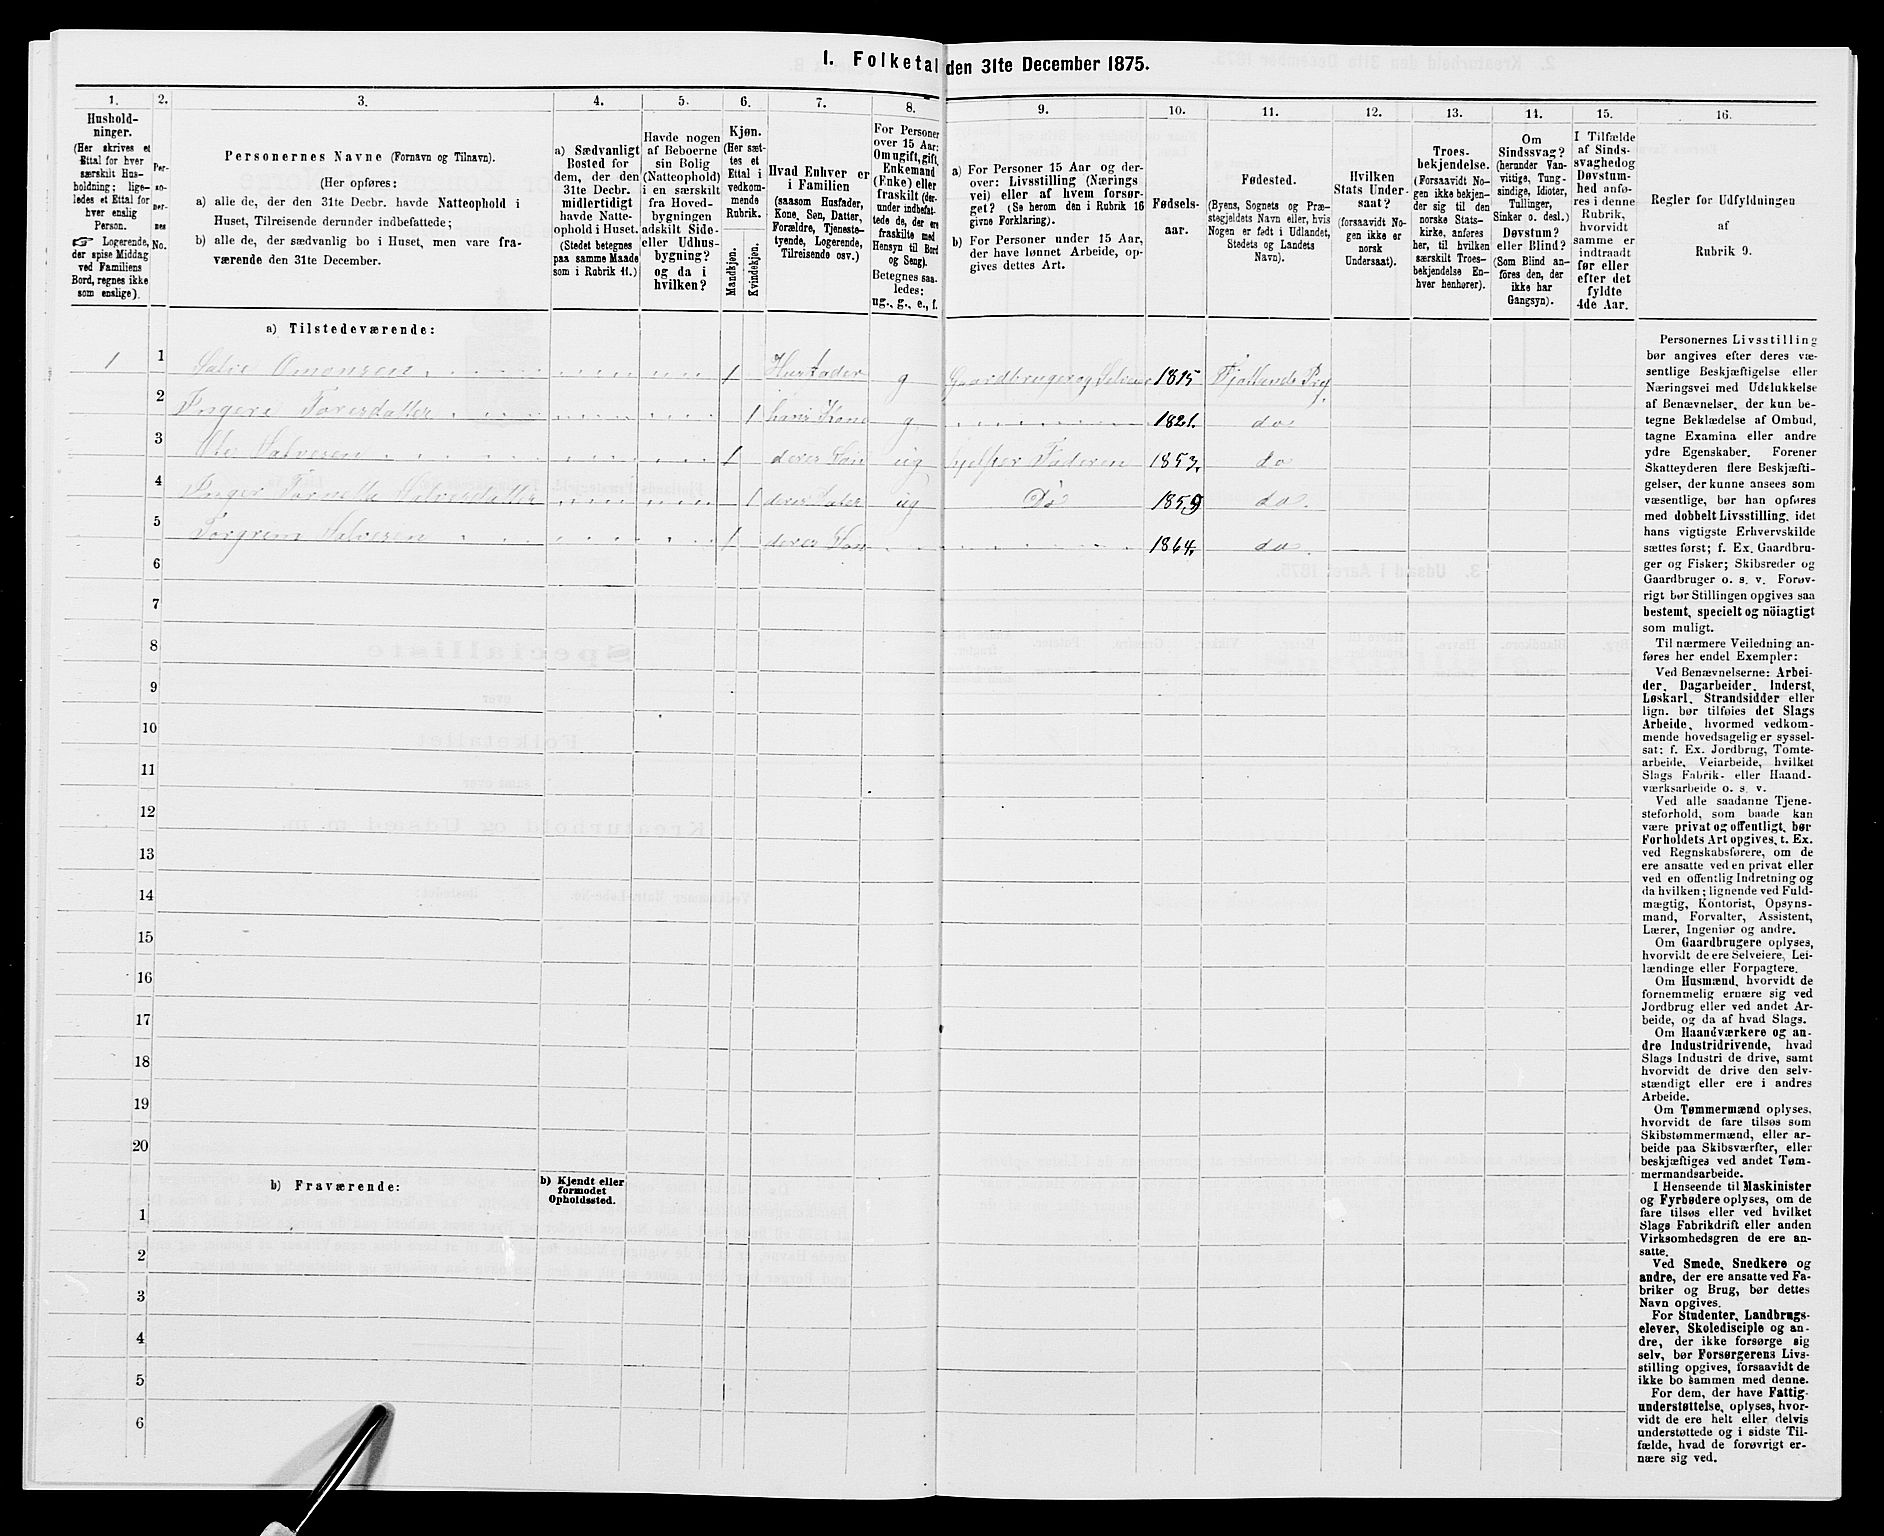 1. Folketal den 31te December 1875.
1.
2.
3.
4.
5.
6.
7.
8.
9.
10.
11.
12.
13.
14.
15.
16.
Hushold-
ninger.
(Her skrives et
Ettal for hver
særskilt Hus-
holdning; lige-
ledes et Ettal for
hver enslig
Person.
☞ Logerende,
der spise Middag
ved Familiens
Bord, regnes ikke
som enslige).
Per-
so-
ner-
nes
No.
Personernes Navne (Fornavn og Tilnavn).
(Her opføres:
a) alle de, der den 31te Decbr. havde Natteophold i
Huset, Tilreisende derunder indbefattede;
b) alle de, der sædvanlig bo i Huset, men vare fra-
værende den 31te December.
a) Sædvanligt
Bosted for
dem, der den
31te Decbr.
midlertidigt
havde Natte-
ophold i Huset.
(Stedet betegnes
paa samme Maade
som i Rubrik 11.)
Havde nogen
af Beboerne
sin Bolig
(Natteophold)
i en særskilt
fra Hoved-
bygningen
adskilt Side-
eller Udhus-
bygning?
og da i
hvilken?
Kjøn.
(Her sæt-
tes et
Ettal i
vedkom-
mende
Rubrik.
Mandkjøn.
Kvindekjøn.
Hvad Enhver er
i Familien
(saasom Husfader,
Kone, Søn, Datter,
Forældre, Tjeneste-
tyende, Logerende,
Tilreisende osv.)
For Personer
over 15 Aar:
Om ugift, gift,
Enkemand
(Enke) eller
fraskilt (der-
under indbefat-
tede de, der ere
fraskilte med
Hensyn til Bord
og Seng).
Betegnes saa-
ledes:
ug., g., e., f.
a) For Personer 15 Aar og der-
over: Livsstilling (Nærings
vei) eller af hvem forsør-
get? (Se herom den i Rubrik 16
givne Forklaring).
b) For Personer under 15 Aar,
der have lønnet Arbeide, op-
gives dettes Art.
Fødsels-
aar.
Fødested.
(Byens, Sognets og Præ-
stegjeldets Navn eller, hvis
Nogen er født i Udlandet,
Stedets og Landets
Navn).
Hvilken
Stats Under-
saat?
(forsaavidt No-
gen ikke er
norsk
Undersaat).
Troes-
bekjendelse.
(Forsaavidt No-
gen ikke bekjen-
der sig til den
norske Stats-
kirke, anføres
her, til hvilken
særskilt Troes-
bekjendelse En-
hver henhører).
Om
Sindssvag?
(herunder Van-
vittige, Tung-
sindige, Idioter,
Tullinger,
Sinker o. desl.)
Døvstum?
eller Blind?
(Som Blind an-
føres den, der
ikke har
Gangsyn).
I Tilfælde
af Sinds-
svaghed og
Døvstum-
hed anfø-
res i denne
Rubrik,
hvorvidt
samme er
indtraadt
før eller
efter det
fyldte
4de Aar.
Regler for Udfyldningen
af
Rubrik 9.
a) Tilstedeværende:
1 1 Salve Omonsen 1 Husfader g Gaardbruger og Selveier 1815 Fjotlands Prgj.
2 Inger Toresdatter 1 hans Kone g 1821. do
3 Ole Salvesen 1 deres Søn ug hjelper Faderen 1853. do
4 Inger Salvesdatter 1 deres Dater ug Do 1859 do.
5 Torgrim Salvesen 1 deres Søn 1864. do.
6
7
8
9
10
11
12
13
14
15
16
17
18
19
20
b) Fraværende:
b) Kjendt eller
formodet
Opholdssted.
1
2
3
4
5
6
Personernes Livsstilling
bør angives efter deres væ-
sentlige Beskjæftigelse eller
Næringsvei med Udelukkelse
af Benævnelser, der kun be-
tegne Beklædelse af Ombud,
tagne Examina eller andre
ydre Egenskaber. Forener
Skatteyderen flere Beskjæfti-
gelser, der kunne ansees som
væsentlige, bør han opføres
med dobbelt Livsstilling, idet
hans vigtigste Erhvervskilde
sættes først; f. Ex. Gaardbru-
ger og Fisker; Skibsreder og
Gaardbruger o. s. v. Forøv-
rigt bør Stillingen opgives saa
bestemt, specielt og nöiagtigt
som muligt.
Til nærmere Veiledning an-
føres her endel Exempler:
Ved Benævnelserne: Arbei-
der, Dagarbeider, Inderst,
Løskarl, Strandsidder eller
lign. bør tilføies det Slags
Arbeide, hvormed vedkom-
mende hovedsagelig er syssel-
sat; f. Ex. Jordbrug, Tomte-
arbeide, Veiarbeide, hvilket
Slags Fabrik- eller Haand-
værksarbeide o. s. v.
Ved alle saadanne Tjene-
steforhold, som baade kan
være privat og offentligt, bør
Forholdets Art opgives, t. Ex.
ved Regnskabsførere, om de
ere ansatte ved en privat eller
ved en offentlig Indretning og
da hvilken; lignende ved Fuld-
mægtig, Kontorist, Opsyns-
mand, Forvalter, Assistent,
Lærer, Ingeniør og andre.
Om Gaardbrugere oplyses,
hvorvidt de ere Selveiere, Lei-
lændinge eller Forpagtere.
Om Husmænd, hvorvidt de
fornemmelig ernære sig ved
Jordbrug eller ved andet Ar-
beide, og da af hvad Slags.
Om Haandværkere og an-
dre Industridrivende, hvad
Slags Industri de drive, samt
hvorvidt de drive den selv-
stændigt eller ere i andres
Arbeide.
Om Tømmermænd oplyses,
hvorvidt de fare tilsøs som
Skibstømmermænd, eller ar-
beide paa Skibsværfter, eller
beskjæftiges ved andet Tøm-
mermandsarbeide.
I Henseende til Maskinister
og Fyrbødere oplyses, om de
fare tilsøs eller ved hvilket
Slags Fabrikdrift eller anden
Virksomhedsgren de ere an-
satte.
Ved Smede, Snedkere og
andre, der ere ansatte ved Fa-
briker og Brug, bør dettes
Navn opgives.
For Studenter, Landbrugs-
elever, Skoledisciple og an-
dre, der ikke forsørge sig
selv, bør Forsørgerens Livs-
stilling opgives, forsaavidt de
ikke bo sammen med denne.
For dem, der have Fattig-
understøttelse, oplyses, hvor-
vidt de ere helt eller delvis
understøttede og i sidste Til-
fælde, hvad de forøvrigt er-
nære sig ved.